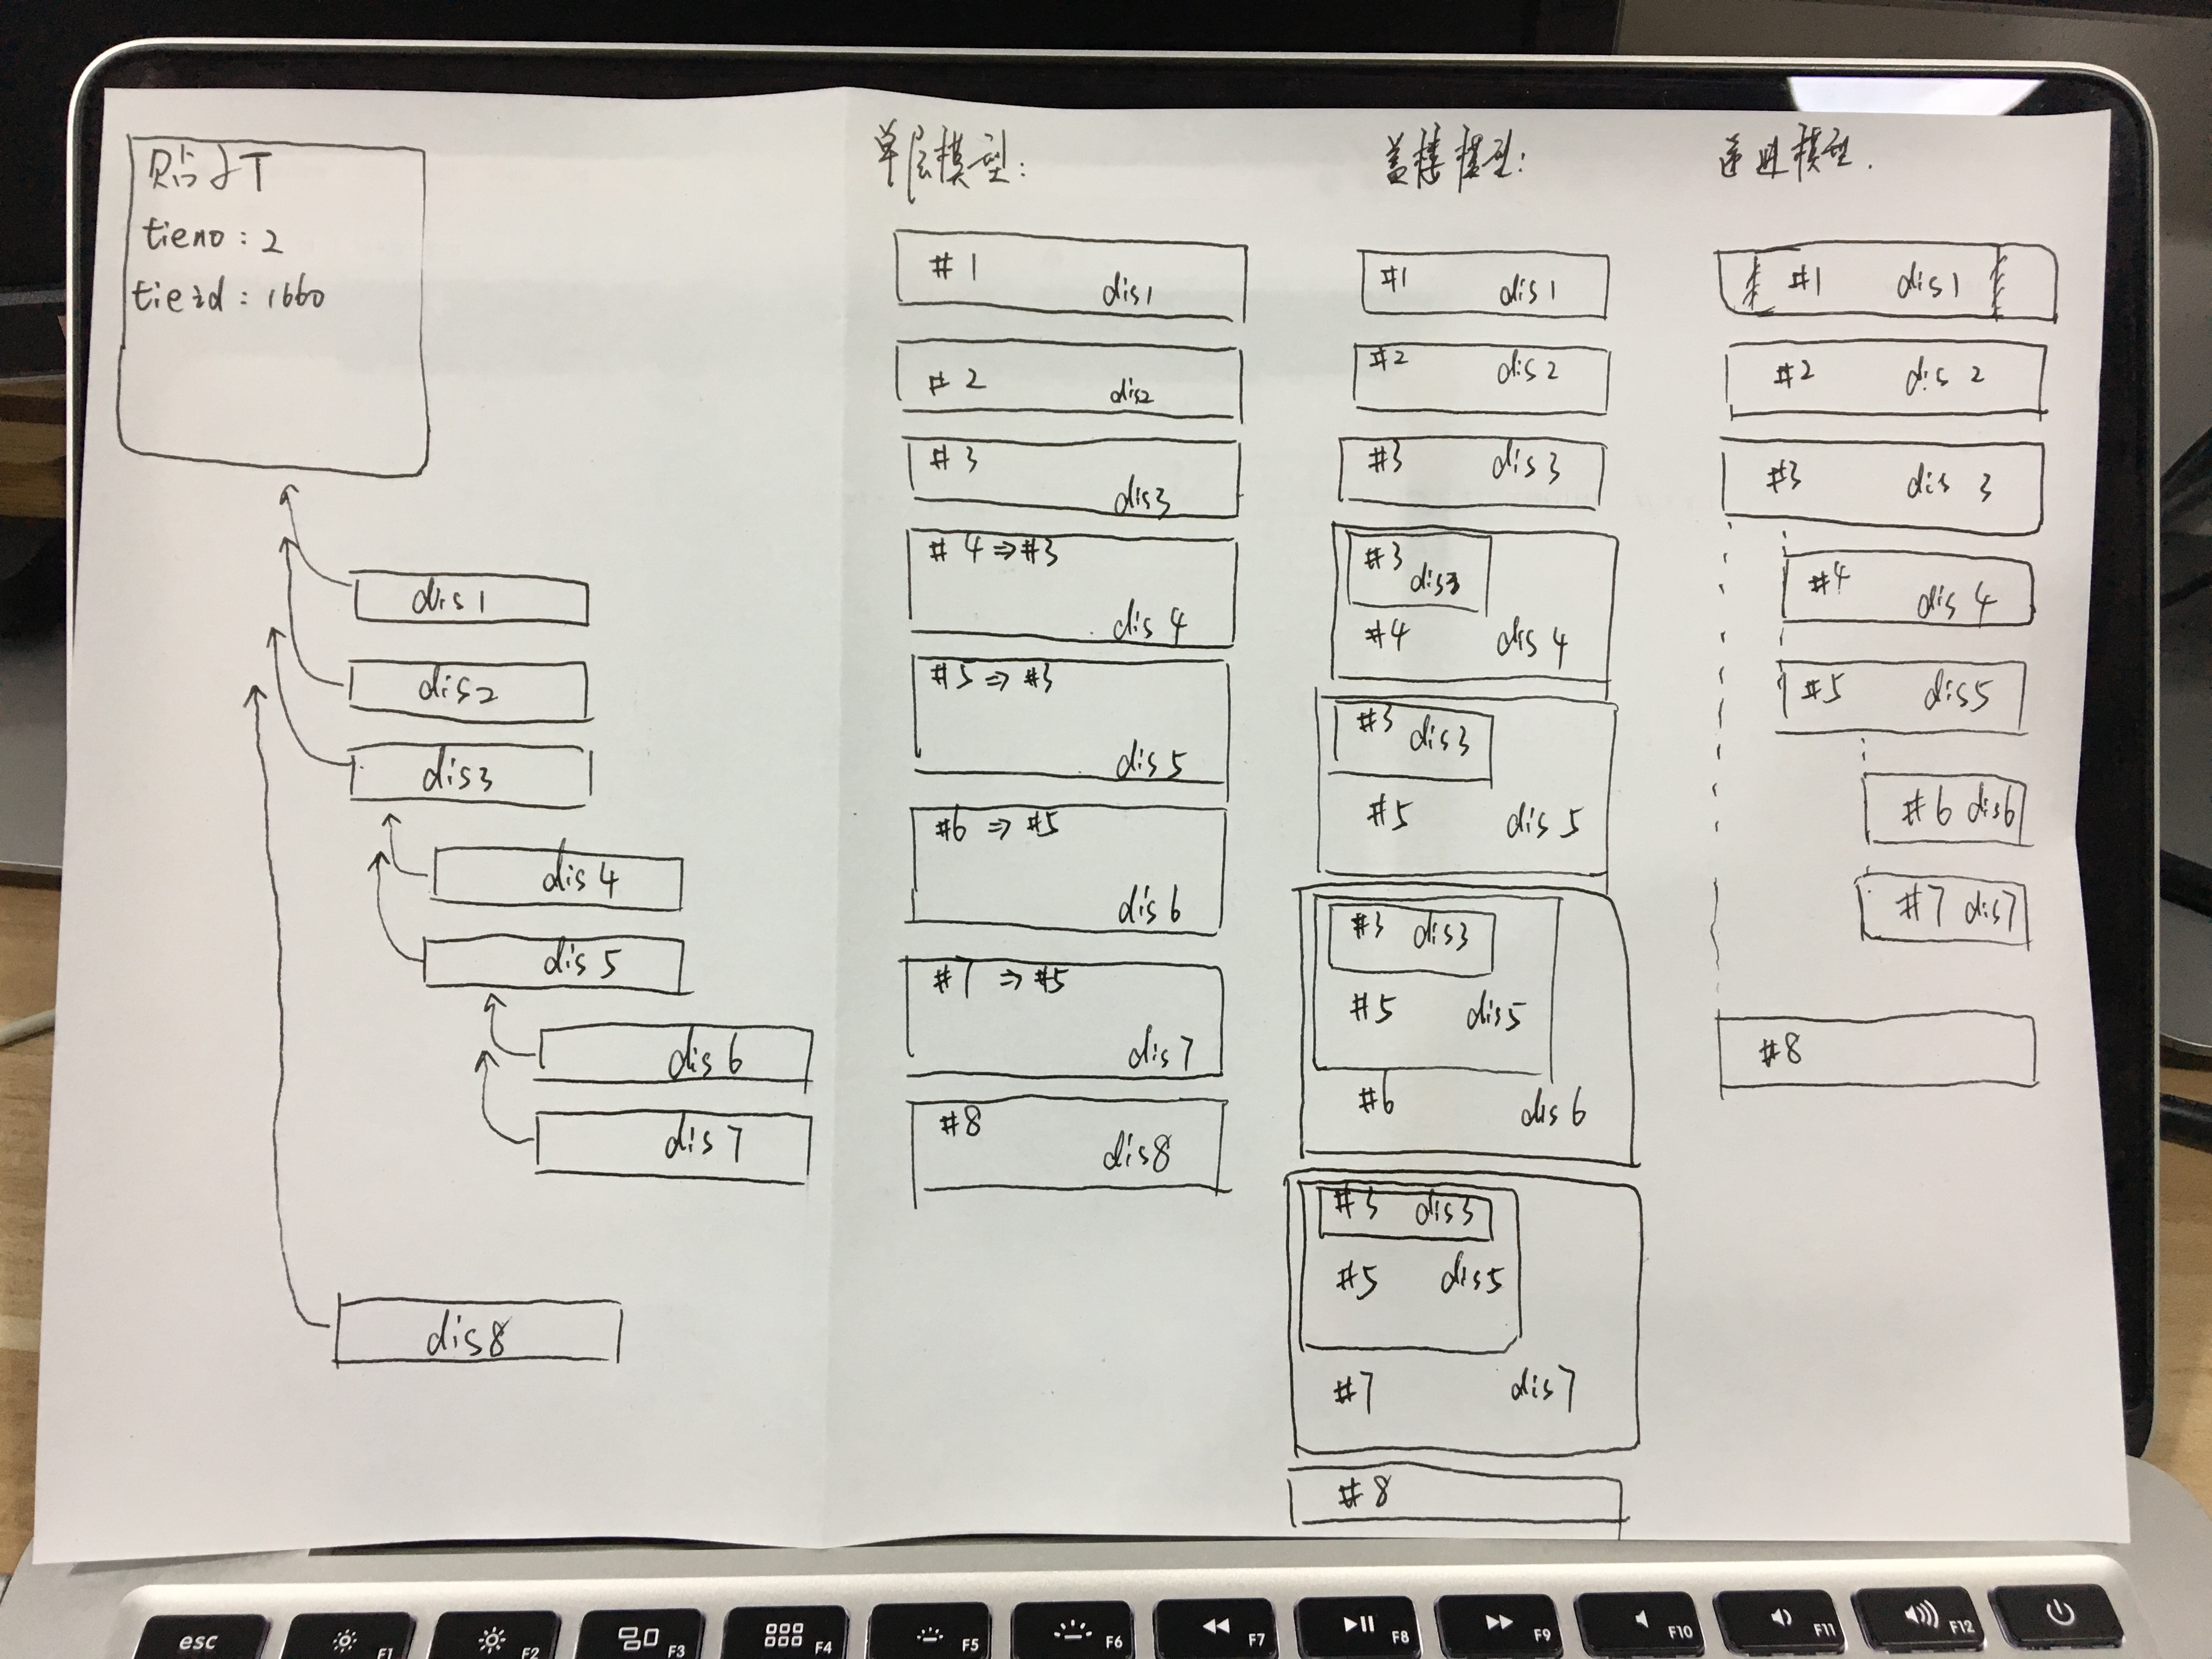 贴子T
tieno : 2
tieid : 1660
dis1
dis2
dis3
dis 4
dis 5
dis 6
dis 7
dis8
单层模型:
#1 dis1
#2 dis2
#3 dis3
#4 ⇒ #3
dis 4
#5 ⇒ #3
dis 5
#6 ⇒ #5
dis 6
#7 ⇒ #5
dis 7
#8
dis8
盖楼模型:
#1 dis1
#2 dis2
#3 dis3
#3 dis3
#4 dis 4
#3 dis3
#5 dis 5
#3 dis3
#5 dis5
#6 dis 6
#3 dis3
#5 dis5
#7 dis7
#8
递进模型.
#1 dis1
#2 dis 2
#3 dis 3
#4 dis 4
#5 dis5
#6 dis6
#7 dis7
#8
esc
F1
F2
F3
F4
F5
F6
F7
F8
F9
F10
F11
F12